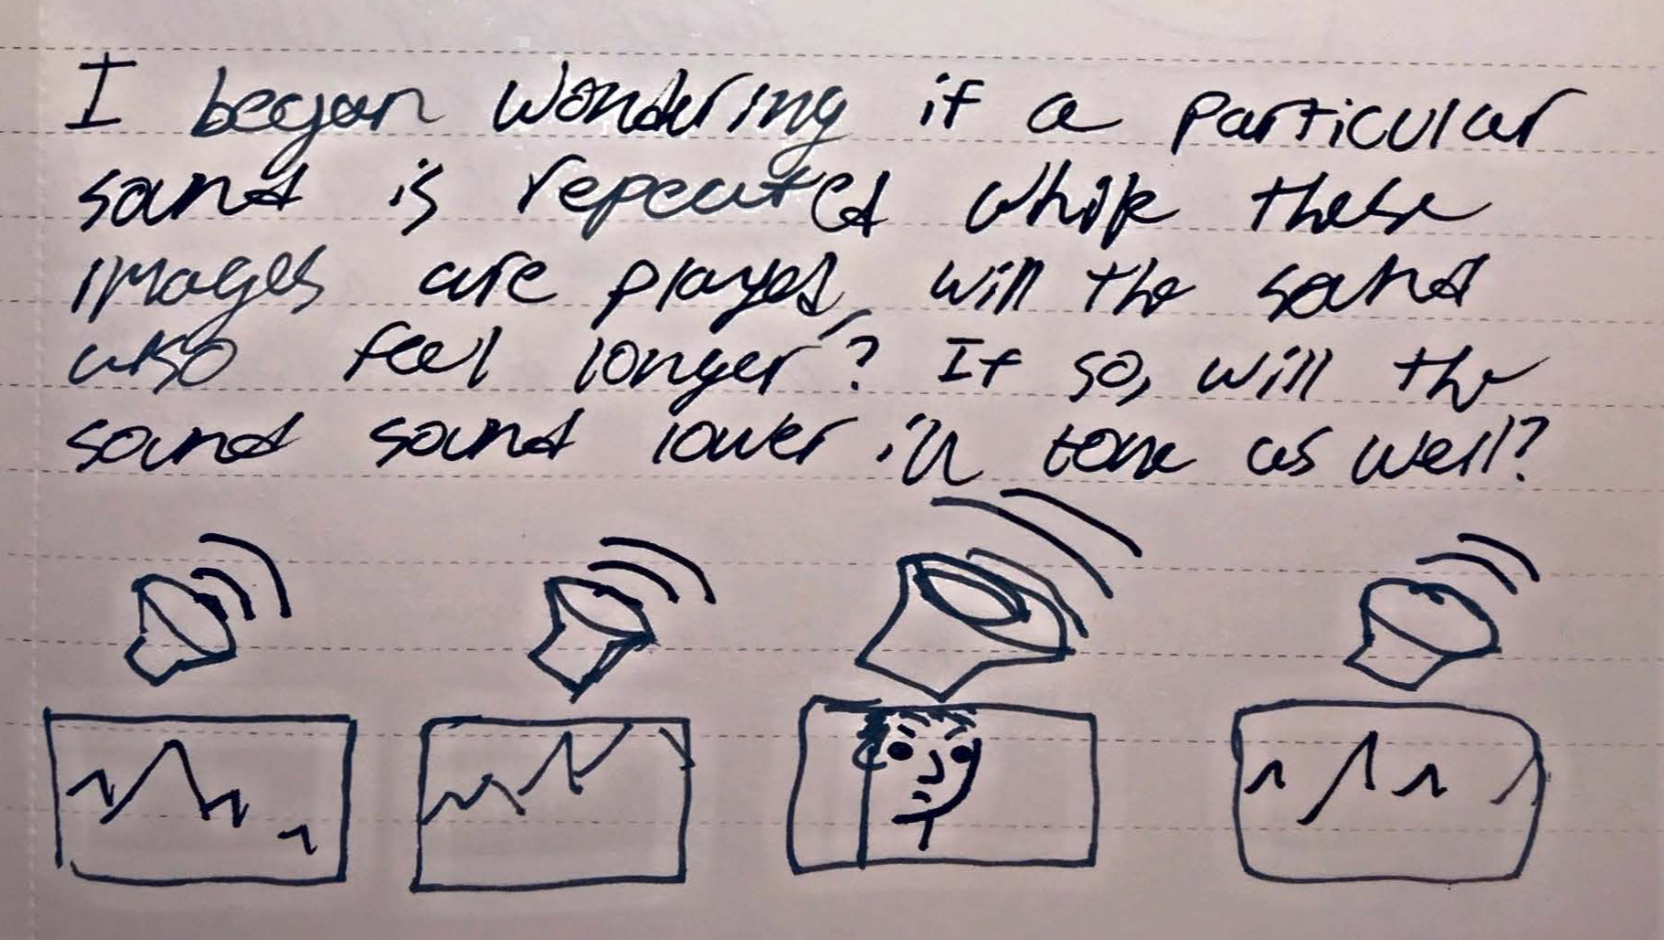 I began wondering if a particular
sound is repeated while these
images are played, will the sound
also feel longer? If so, will the
sound sound lower in tone as well?